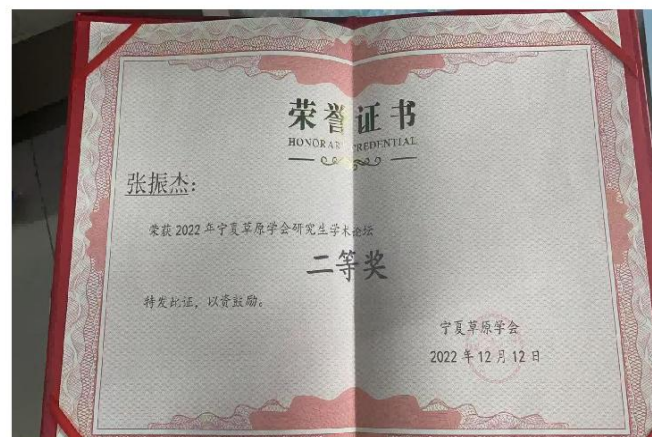 荣誉证书
HONORARY CREDENTIAL
张振杰:
荣获2022年宁夏草原学会研究生学术论坛
二等奖
特发此证，以资鼓励。
宁夏草原学会
2022年12月12日